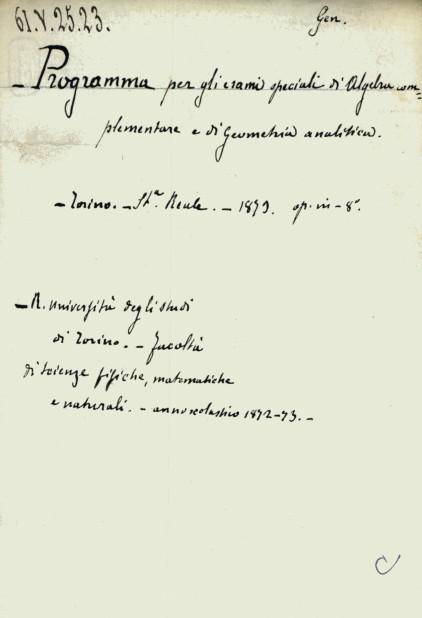 61.V.25.23.
Gen.
– Programma per gli esami speciali di Algebra com=
plementare e di Geometria analitica.
– Torino. – St.ª Reale. – 1873. op. in – 8º.
– R. Università degli studi
di Torino. – Facoltà
di scienze fisiche, matematiche
e naturali. – anno scolastico 1872–73. –